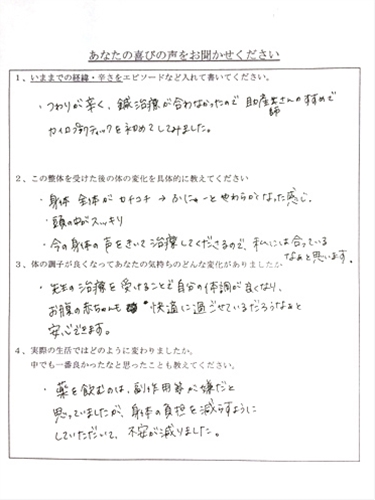 あなたの喜びの声をお聞かせください
1、いままでの経緯・辛さをエピソードなど入れて書いてください。
・つわりが辛く、鍼治療が合わなかったので 助産師さんのすすめで
カイロプラクティックを初めてしてみました。
2、この整体を受けた後の体の変化を具体的に教えてください
・身体全体が カチコチ → ふにゃーと やわらかくなった感じ。
・頭の中がスッキリ
・今の身体の声をきいて治療してくださるので、私には合っている
なぁと思います。
3、体の調子が良くなってあなたの気持ちのどんな変化がありましたか
・先生の治療を受けることで自分の体調が良くなり、
お腹の赤ちゃんも 快適に過ごせているだろうなぁと
安心できます。
4、実際の生活ではどのように変わりましたか。
中でも一番良かったなと思ったことも教えてください。
・薬を飲むのは、副作用等が嫌だと
思っていましたが、身体の負担を減らすように
していただいて、不安が減りました。